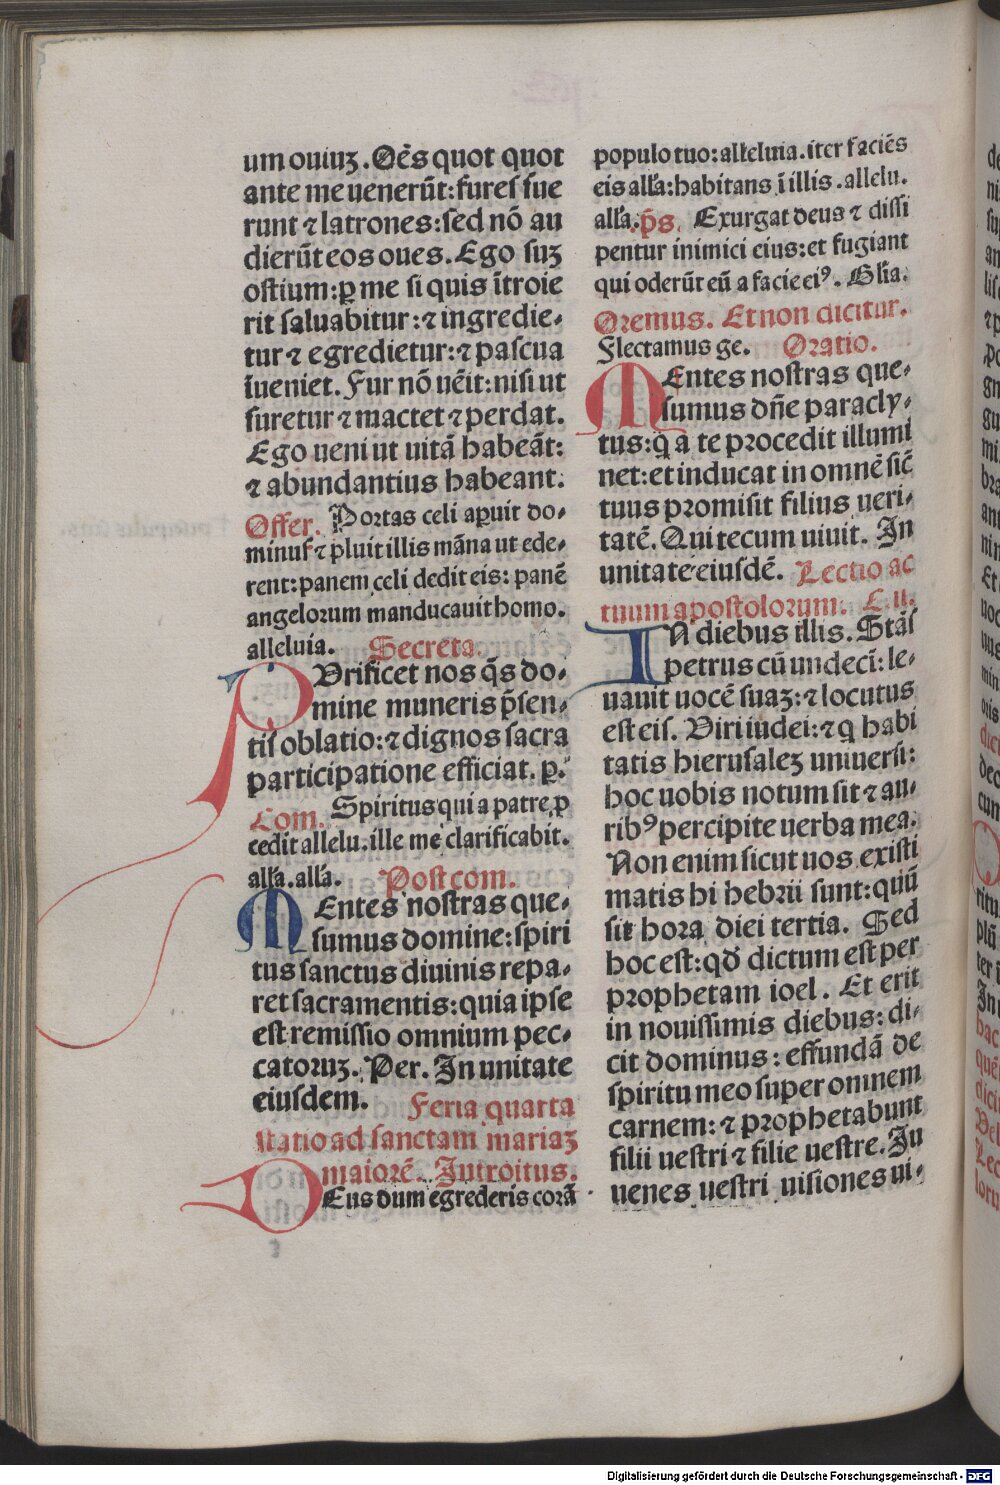 um ouiuꝫ. Oēs quot quot
ante me uenerūt: fureſ fue
runt ⁊ latrones: ſed nō au
dierūt eos oues. Ego ſuꝫ
oſtium: ꝑ me ſi quis ītroie
rit ſaluabitur: ⁊ ingredie-
tur ⁊ egredietur: ⁊ paſcua
īueniet. Fur nō uēit: niſi ut
furetur ⁊ mactet ⁊ perdat.
Ego ueni ut uitā habeāt:
⁊ abundantius habeant.
Offer. Portas celi aꝑuit do-
minuſ ⁊ pluit illis māna ut ede-
rent: panem celi dedit eis: panē
angelorum manducauit homo.
alleluia. Secreta.
PVrificet nos q̄s do-
mine muneris p̄ſen-
tiſ oblatio: ⁊ dignos ſacra
participatione efficiat. ꝑ.
Com. Spiritus qui a patre ꝓ
cedit allelu. ille me clarificabit.
alľa. alľa. Poſt com.
MEntes noſtras que-
ſumus domine: ſpiri
tus ſanctus diuinis repa-
ret ſacramentis: quia ipſe
eſt remiſſio omnium pec-
catoruꝫ. Per. In unitate
eiuſdem. Feria quarta
ſtatio ad ſanctam mariaꝫ
maiorē. Introitus.
DEus dum egrederis corā
populo tuo: alleluia. iter faciēs
eis alľa: habitans ī illis. allelu.
alľa. p̄s. Exurgat deus ⁊ diſſi
pentur inimici eius: et fugiant
qui oderūt eū a facie eiꝰ. Gľia.
Oremus. Et non dicitur.
Flectamus ge. Oratio.
MEntes noſtras que-
ſumus dn̄e paracly-
tus: q̄ a te procedit illumi
net: et inducat in omnē ſic̄
tuus promiſit filius ueri-
tatē. Qui tecum uiuit. In
unitate eiuſdē. Lectio ac
tuum apoſtolorum. C. ii.
IN diebus illis. Stāſ
petrus cū undecī: le-
uauit uocē ſuaꝫ: ⁊ locutus
eſt eiſ. Viri iudei: ⁊ q̄ habi
tatis hieruſaleꝫ uniuerſi:
hoc uobis notum ſit ⁊ au-
ribꝰ percipite uerba mea.
Non enim ſicut uos exiſti
matis hi hebrii ſunt: quū
ſit hora diei tertia. Sed
hoc eſt: qd̄ dictum eſt per
prophetam ioel. Et erit
in nouiſſimis diebus: di-
cit dominus: effundā de
ſpiritu meo ſuper omnem
carnem: ⁊ prophetabunt
filii ueſtri ⁊ filie ueſtre. Iu
uenes ueſtri uiſiones ui-
Digitalisierung gefördert durch die Deutsche Forschungsgemeinschaft - DFG